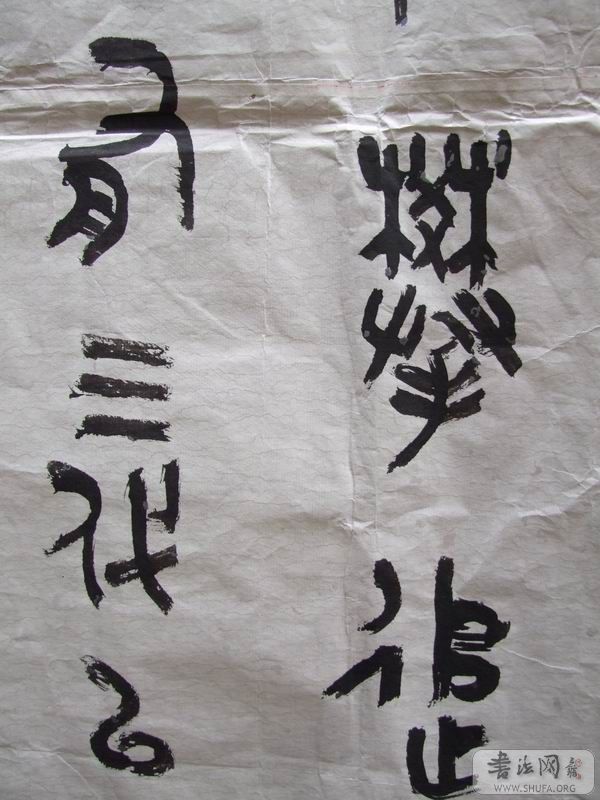 攀追
有三代以
書法网
WWW.SHUFA.ORG